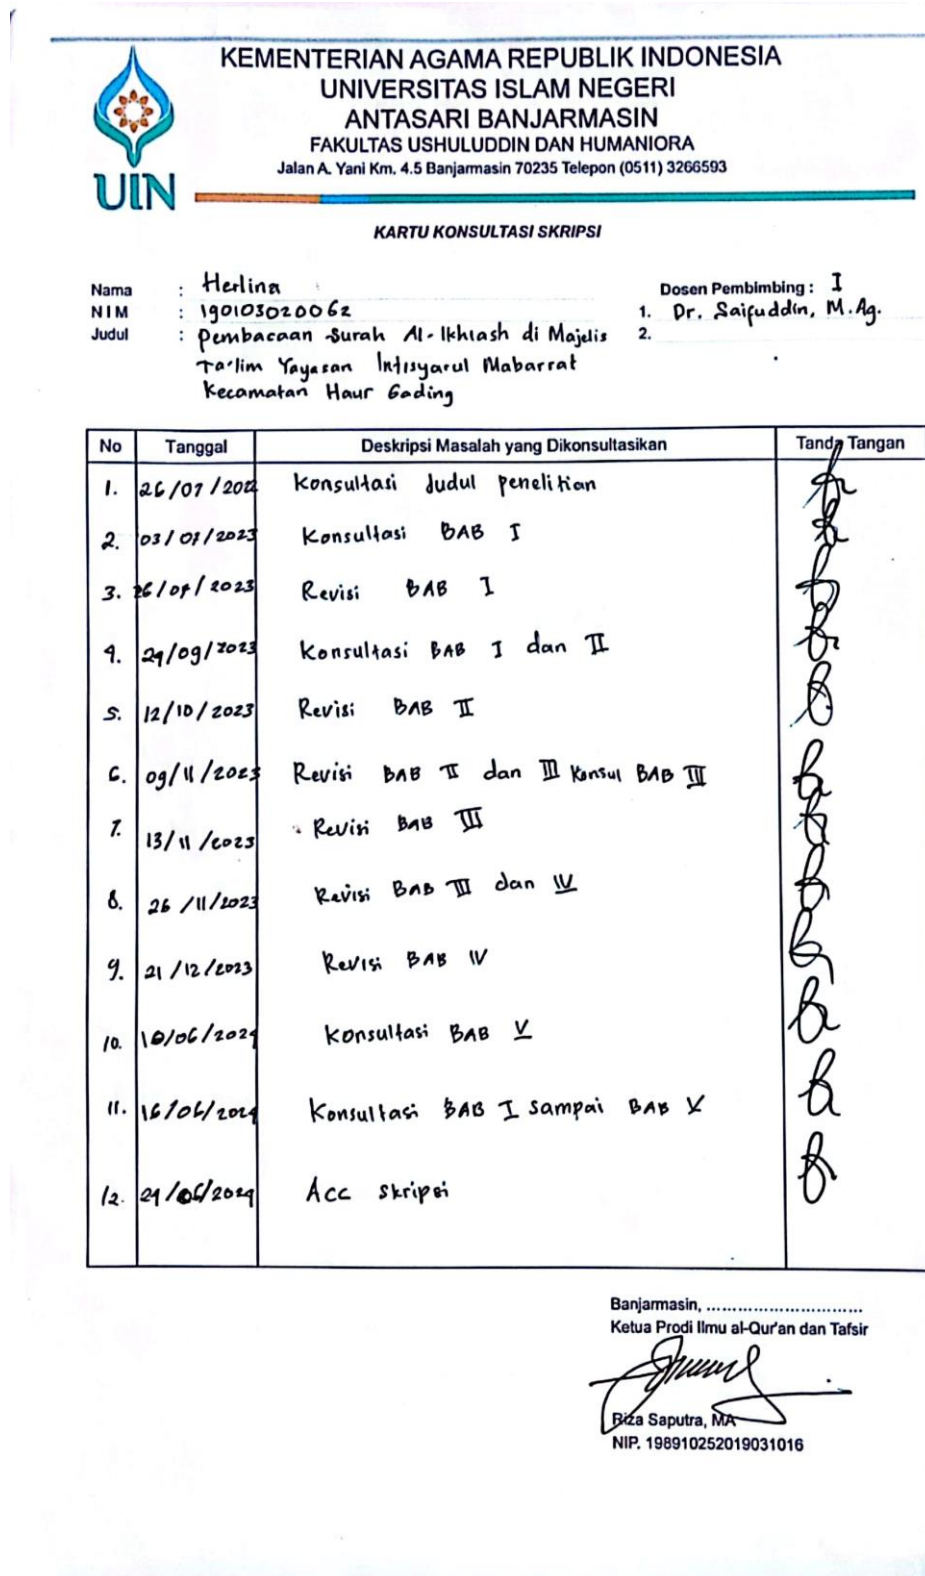 KEMENTERIAN AGAMA REPUBLIK INDONESIA
UNIVERSITAS ISLAM NEGERI
ANTASARI BANJARMASIN
FAKULTAS USHULUDDIN DAN HUMANIORA
Jalan A. Yani Km. 4.5 Banjarmasin 70235 Telepon (0511) 3266593
UIN
KARTU KONSULTASI SKRIPSI
Nama : Herlina
NIM : 190103020062
Judul : Pembacaan Surah Al-Ikhlash di Majelis
Ta'lim Yayasan Intisyarul Mabarrat
Kecamatan Haur Gading
Dosen Pembimbing : I
1. Dr. Saifuddin, M.Ag.
2.
No Tanggal Deskripsi Masalah yang Dikonsultasikan Tanda Tangan
1. Konsultasi Judul penelitian
2. Konsultasi BAB I
3. Revisi BAB I
4. 29/09/2023 Konsultasi BAB I dan II
5. 12/10/2023 Revisi BAB II
6. 09/11/2023 Revisi BAB II dan III Konsul BAB III
7. 13/11/2023 Revisi BAB III
8. 26/11/2023 Revisi BAB III dan IV
9. 21/12/2023 Revisi BAB IV
10. 10/06/2024 Konsultasi BAB V
11. 16/06/2024 Konsultasi BAB I sampai BAB V
12. Acc skripsi
Banjarmasin, ..............................
Ketua Prodi Ilmu al-Qur'an dan Tafsir
Riza Saputra, MA
NIP. 198910252019031016